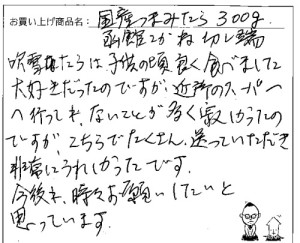 お買い上げ商品名： 国産つまみたら300g.
函館こがね切し端
吹雪たらは、子供の頃良く食べました
大好きだったのですが、近所のスーパー
へ行っても、ないことが多く寂しかったの
ですが、こちらでたくさん、送っていただき
非常にうれしかったです.
今後も、時々お願いしたいと
思っています.